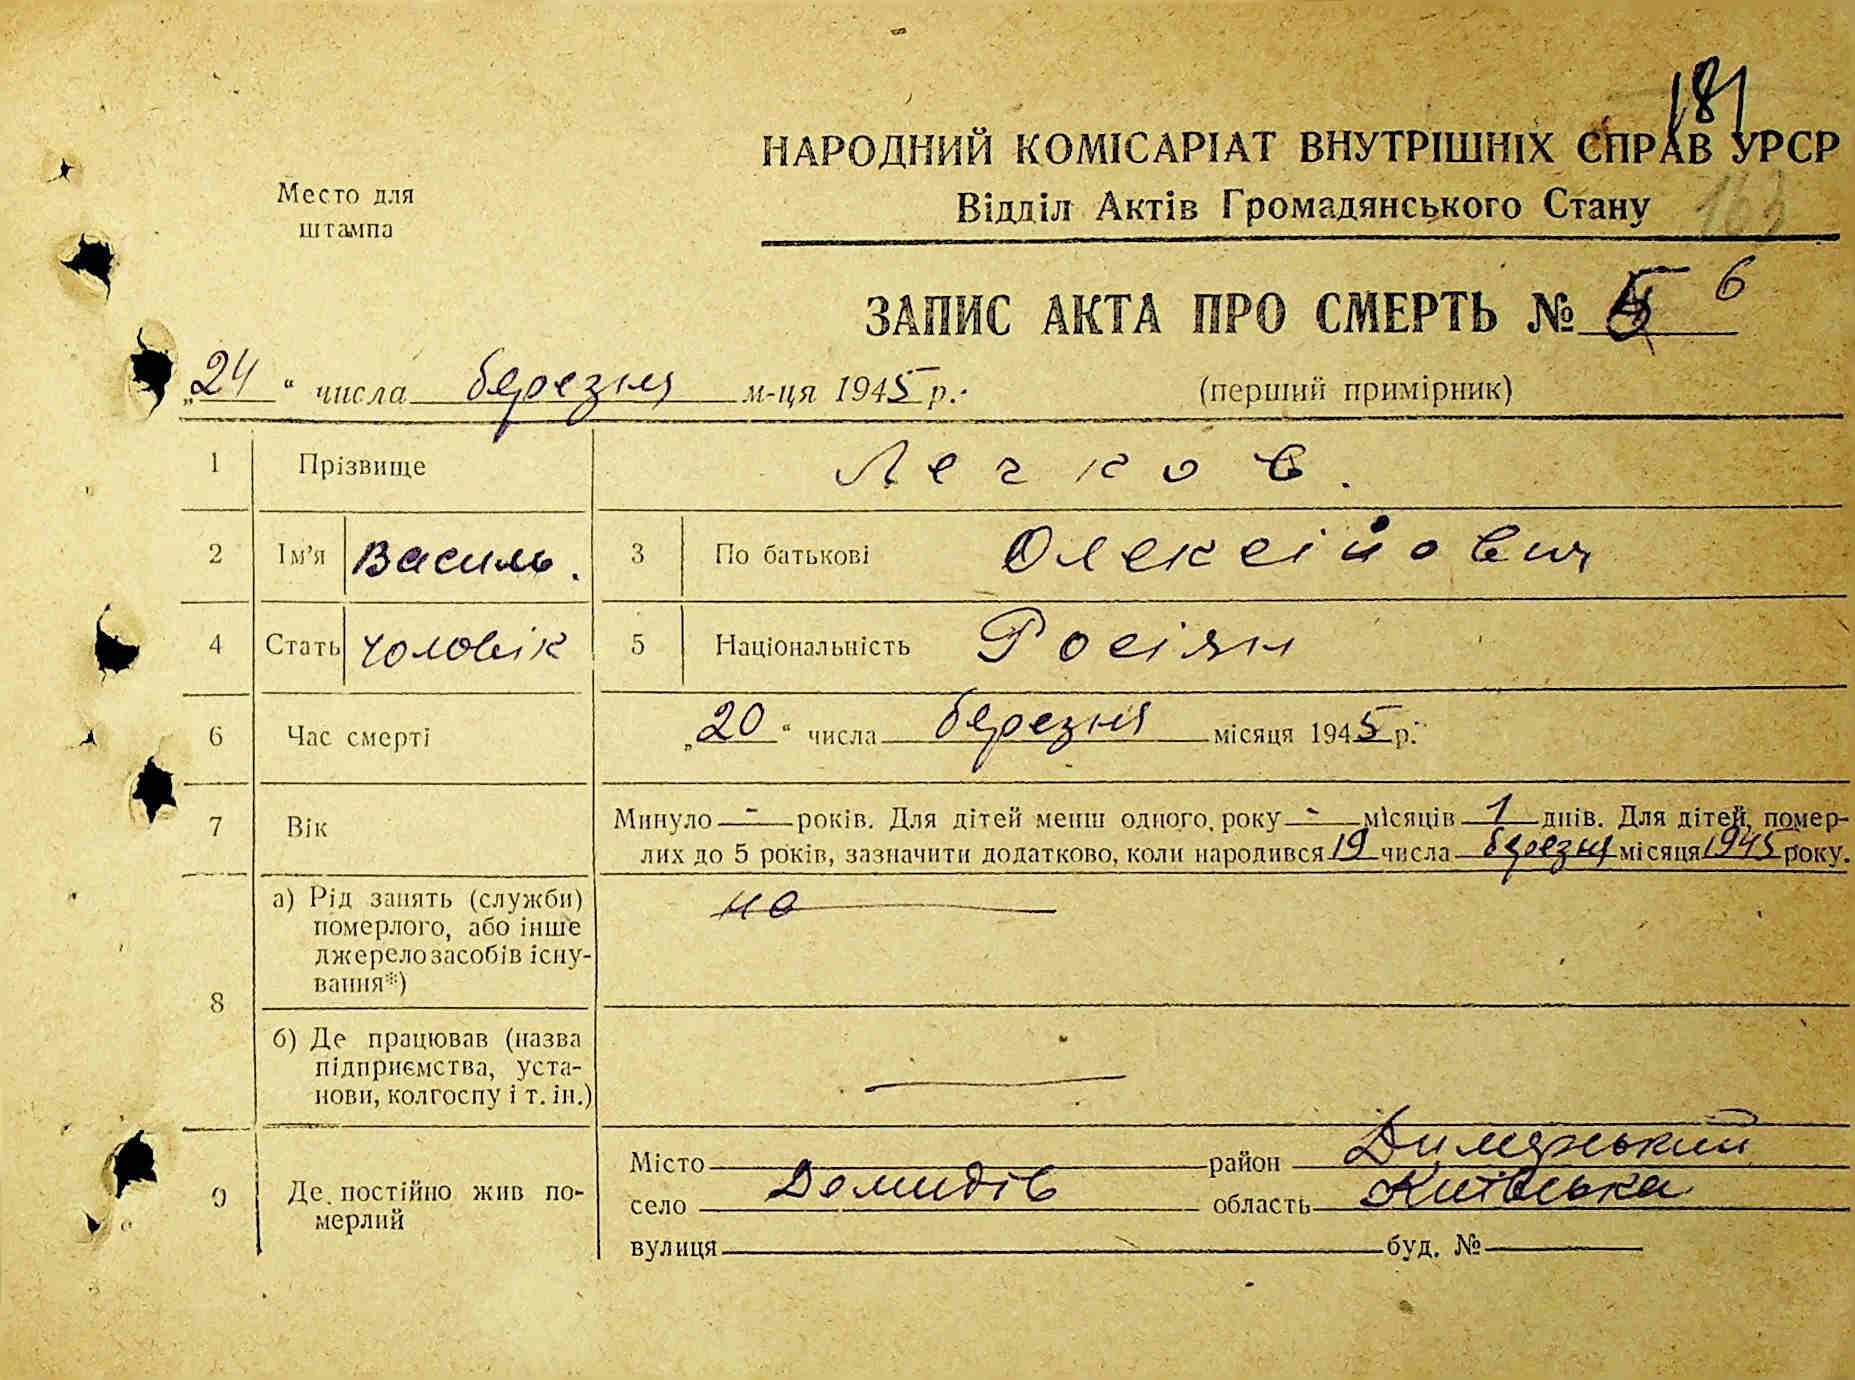 181
НАРОДНИЙ КОМІСАРІАТ ВНУТРІШНІХ СПРАВ УРСР
Место для
штампа
Відділ Актів Громадянського Стану
163
ЗАПИС АКТА ПРО СМЕРТЬ № 6
„24“ числа березня м-ця 1945 р.
(перший примірник)
1 Прізвище Легков.
2 Ім’я Василь. 3 По батькові Олексійович
4 Стать чоловік 5 Національність Росіян
6 Час смерті „20“ числа березня місяця 1945 р.
7 Вік Минуло - років. Для дітей менш одного року - місяців 1 днів. Для дітей, помер-
лих до 5 років, зазначити додатково, коли народився 19 числа березня місяця 1945 року.
8 а) Рід занять (служби)
померлого, або інше
джерело засобів існу-
вання*)
б) Де працював (назва
підприємства, уста-
нови, колгоспу і т. ін.)
9 Де постійно жив по-
мерлий
Місто район Димерський
село Демидів область Київська
вулиця буд. №